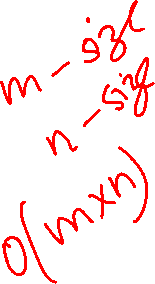 m - size
n - size
O(m×n)